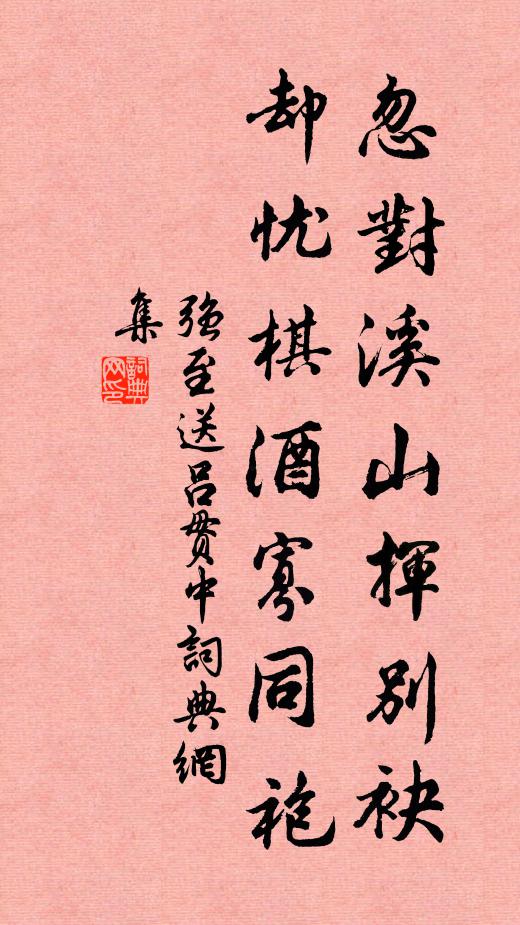 忽對溪山揮別袂
却忧棋酒寡同袍
強至送吕貫中詞典網
集
詞典网印